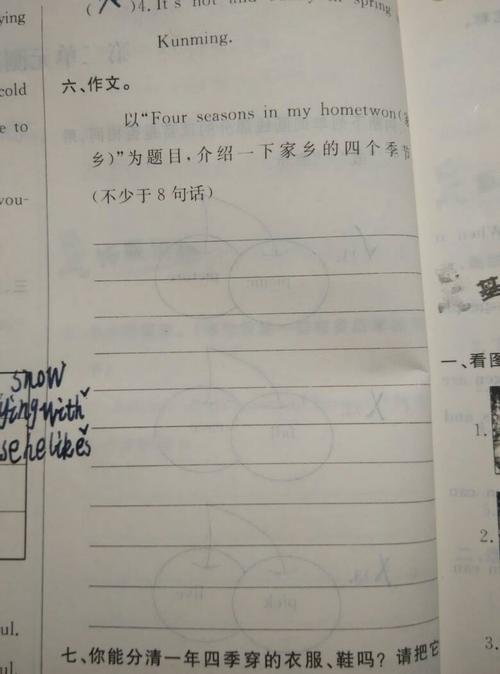 ying
cold
e to
you-
snow
ying with
se he likes
ul.
ul.
( X )4. It's hot and in spring
Kunming.
六、作文。
以“Four seasons in my hometwon(家
乡)”为题目,介绍一下家乡的四个季节
(不少于 8 句话)
七、你能分清一年四季穿的衣服、鞋吗? 请把它
一、看图
1.
2.
3.